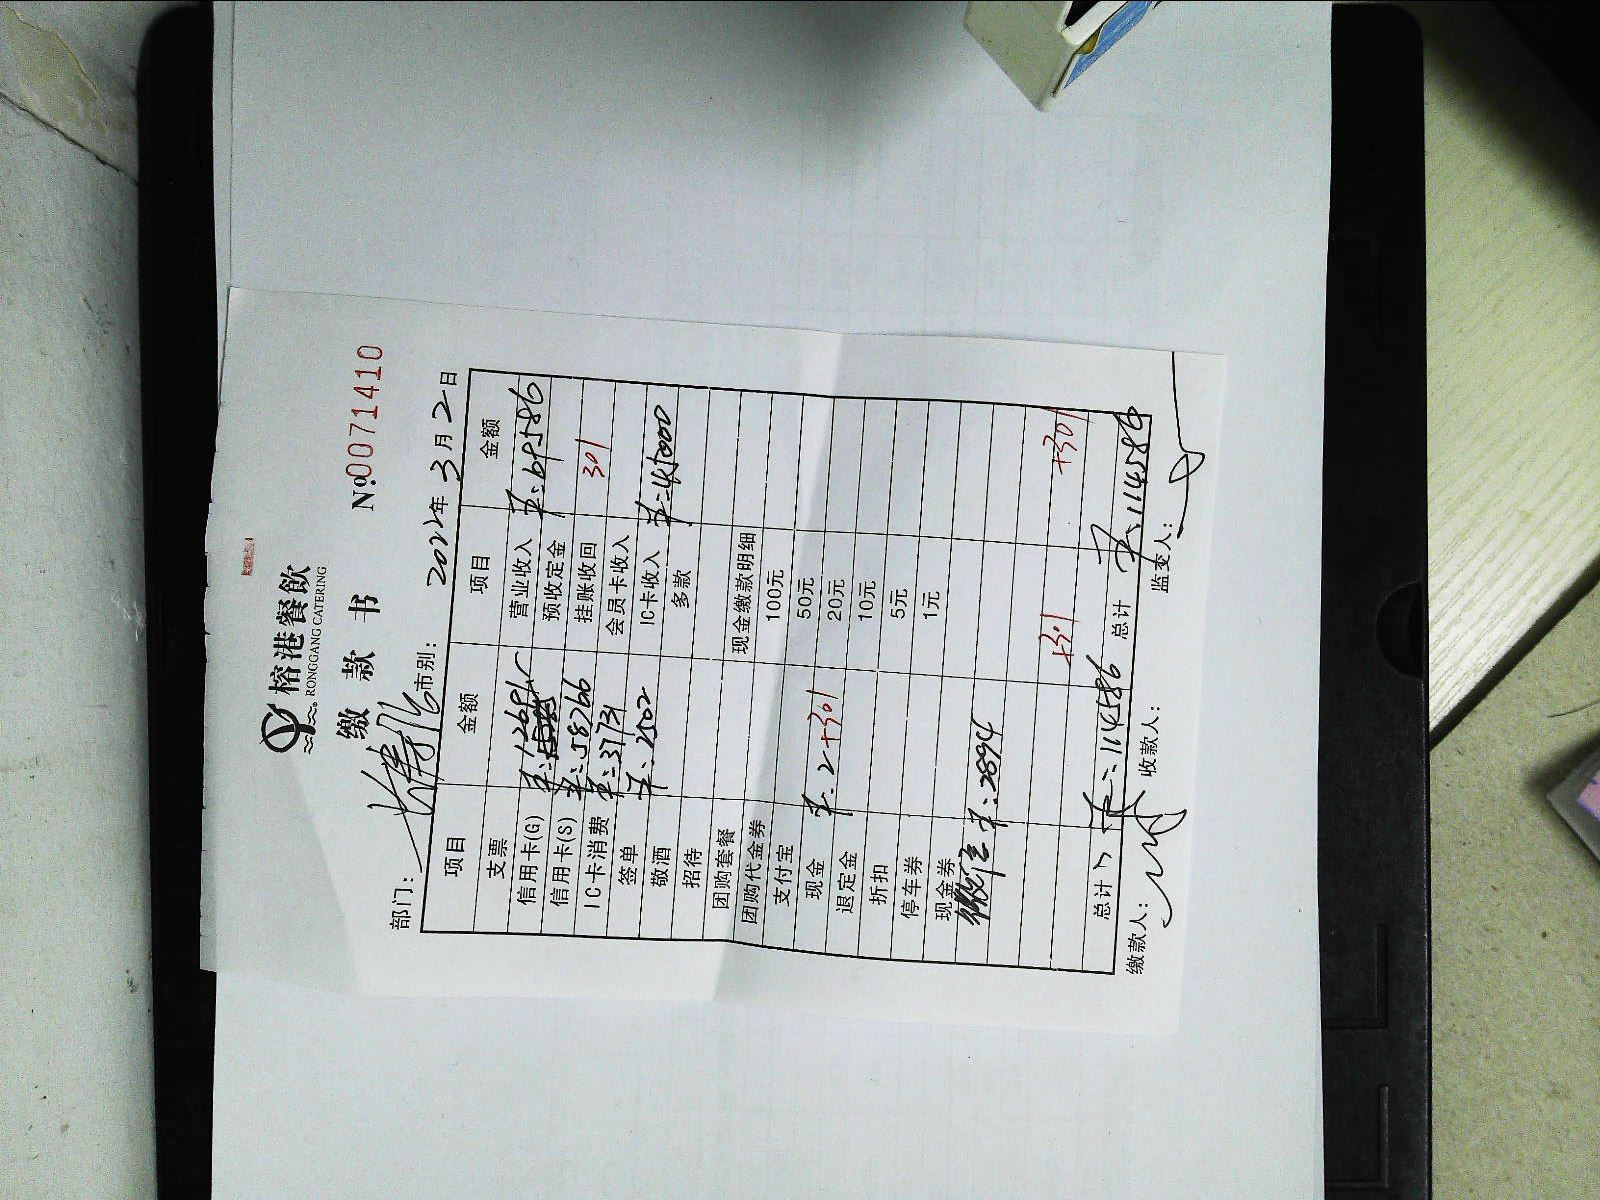 榕港餐飲
RONGGANG CATERING
缴 款 书
No:0071410
部门: 市别: 2022年 3月 2日
项目 金额 项目 金额
支票 营业收入 羊:69586
信用卡(G) 羊:12691 预收定金
信用卡(S) 羊:58766 挂账收回 301
IC卡消费 羊:37731 会员卡收入
签单 羊:2502 IC卡收入 羊:45000
敬酒 多款
招待
团购套餐 现金缴款明细
团购代金券 100元
支付宝 50元
现金 羊:2+301 20元
退定金 10元
折扣 5元
停车券 1元
现金券
微信 羊:2894
+301 +301
总计 羊:114586 总计 羊:114586
缴款人: 收款人: 监交人: